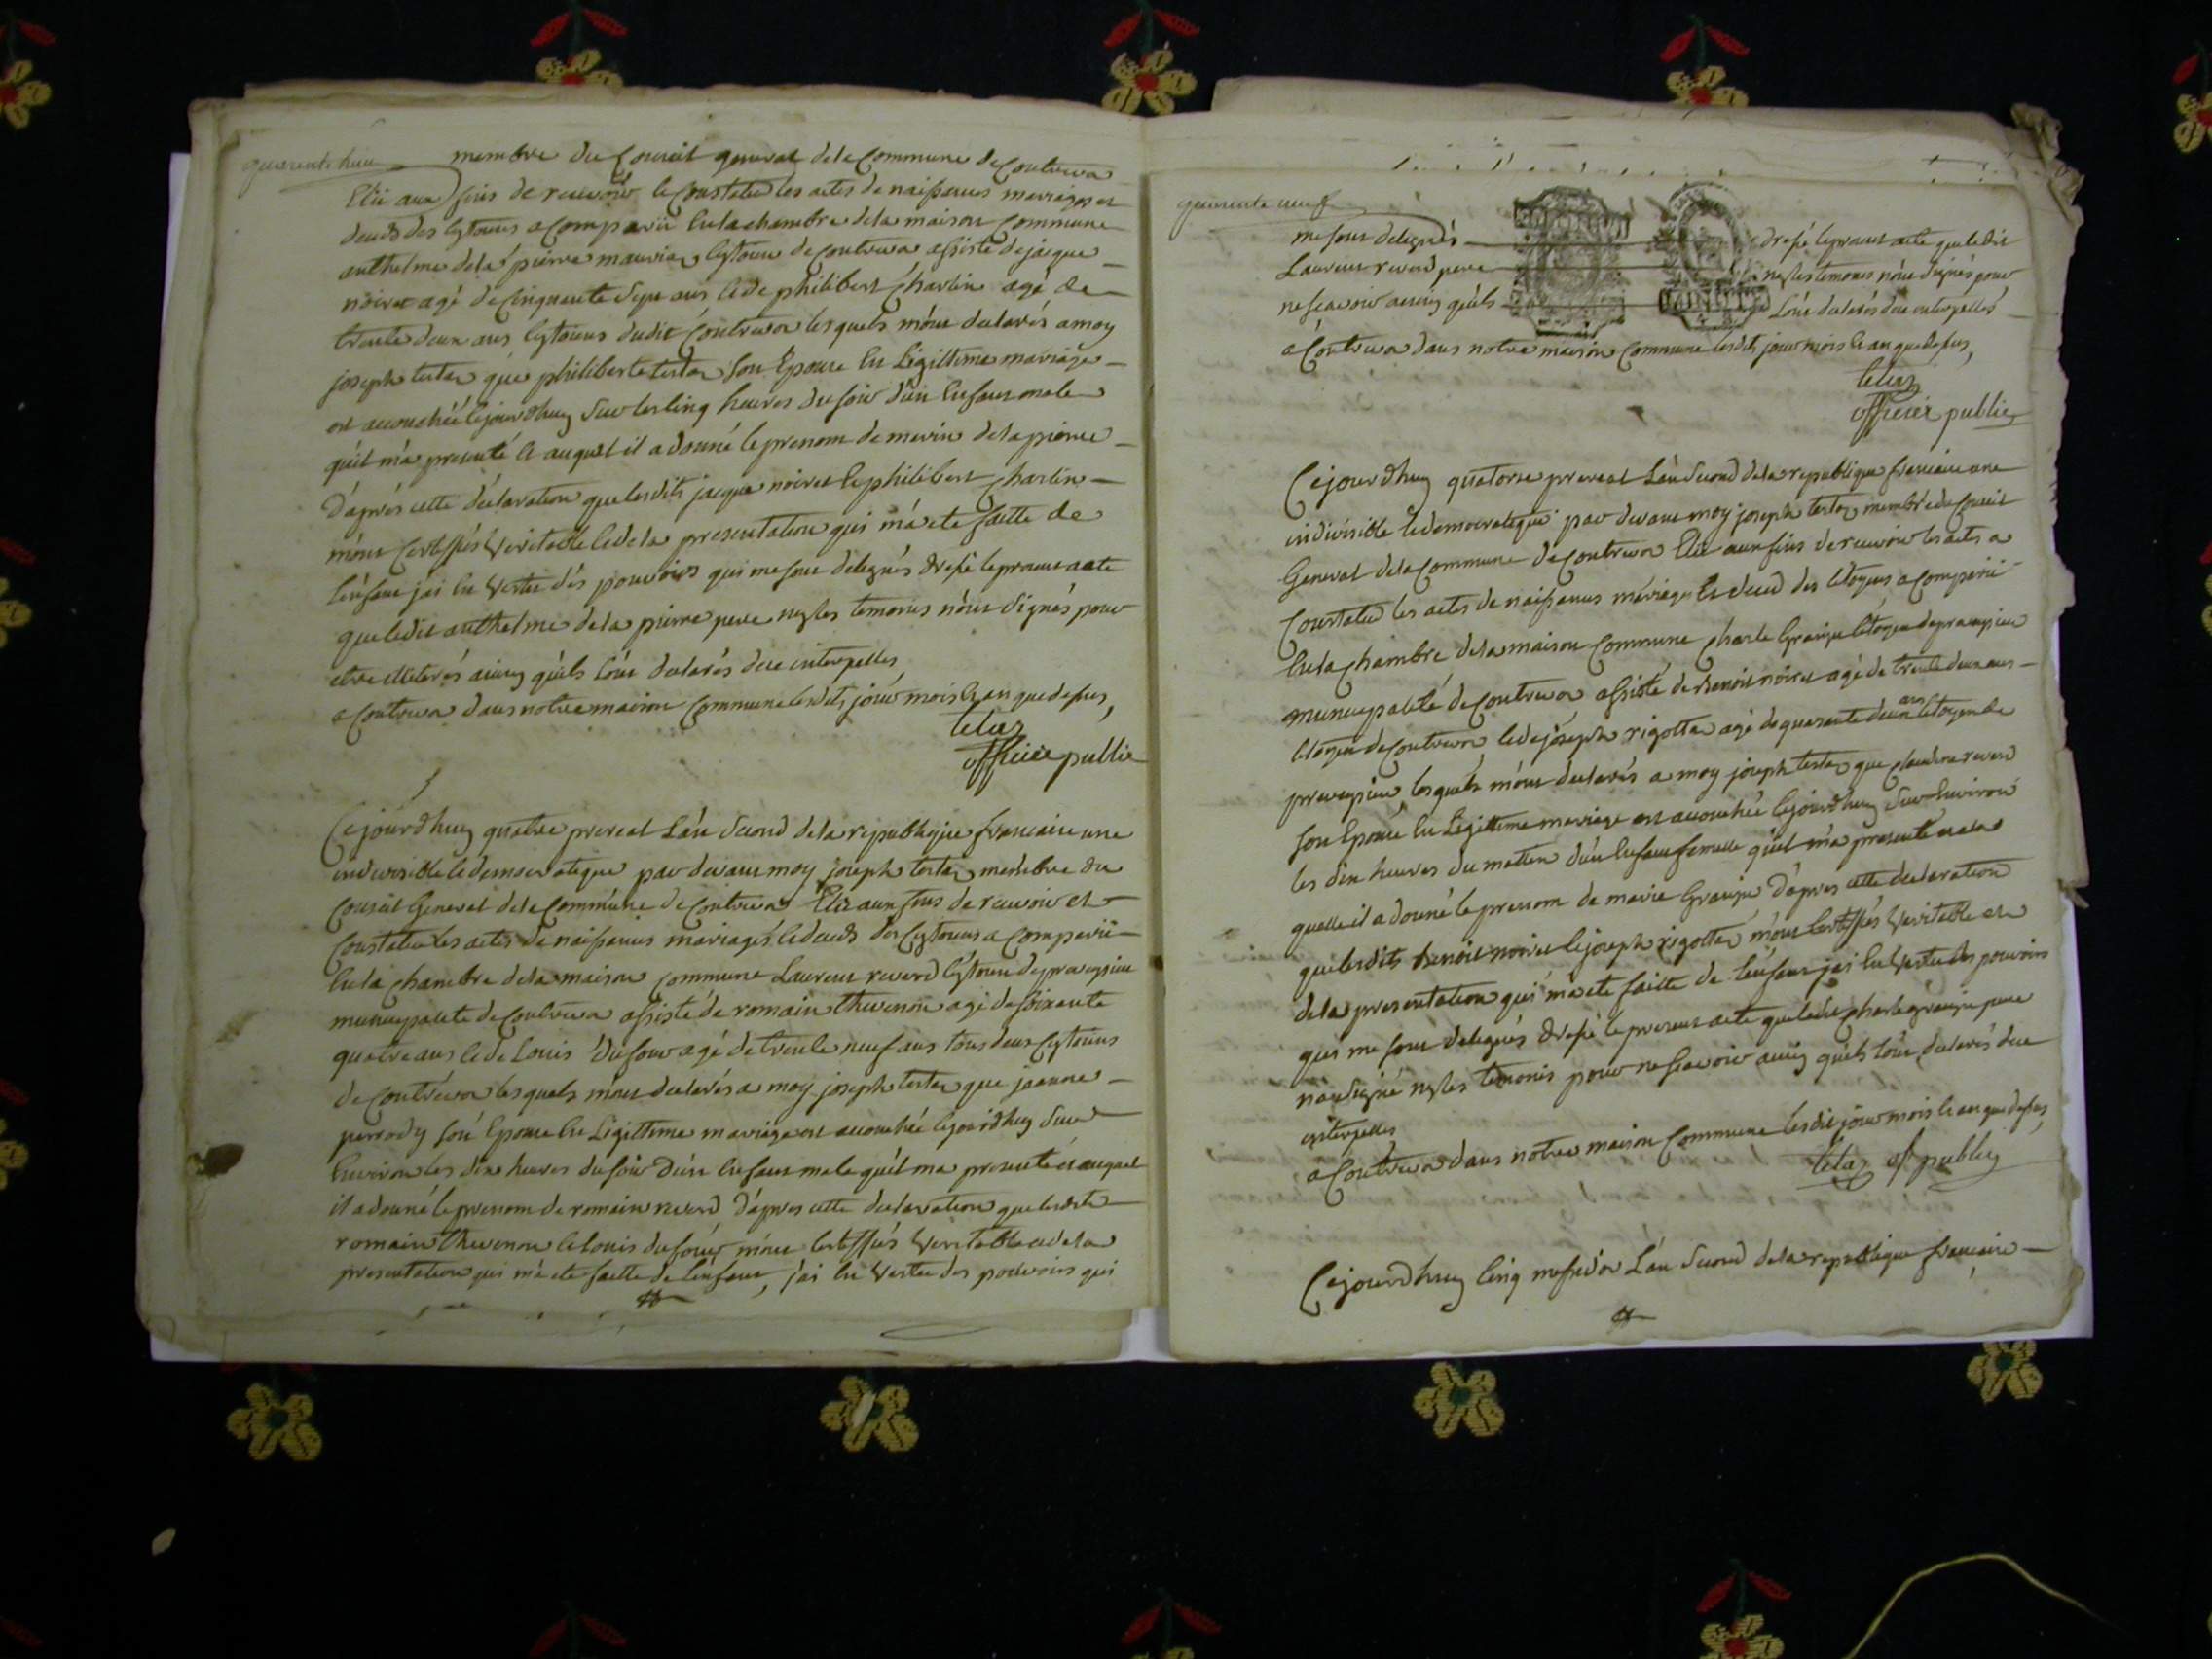 quarente huit
membre du Conseil general de la Commune de Contrevoz
Elü aux fins de recevoir le Constater les actes de naissances mariages et
deceds des Cytoiens a Comparü En la chambre de la maison Commune
anthelme dela pierre Cytoien de Contrevoz assisté de jacque
noiret agé de Cinquante sept ans le de philibert Charlin agé de
trente deux ans Cytoiens dudit Contrevoz lesquels m'ont declarés a moy
joseph tertaz que philiberte tertaz son Epouse En Legittime mariage
est accouchée Cejourdhuy sur les Cinq heures du soir d'un Enfant male
quil m'a presenté et auquel il a donné le prenom de marin delapierre
D'après cette declaration que lesdits jacque noiret le philibert Charlin
m'ont Certiffiés Veritable le de la presentation qui m'a eté faitte de
l'enfant jai En Vertu des pouvoirs qui me sont delegués dressé le present acte
que ledit anthelme de la pierre pere ny les temoins n'ont signés pour
etre illiterés ainsy qu'ils l'ont declarés de ce interpellés
a Contrevoz dans notre maison Commune lesdits jour mois le an que dessus,
officier public
Cejourdhuy quatre prereal L'an second de la republique francaise une
indivisible le democratique par devant moy joseph tertaz membre du
Conseil General de la Commune de Contrevoz Elü aux fins de recevoir et
Constater les actes de naissances mariages le deceds des Cytoiens a Comparü
En la chambre de la maison Commune Laurent reverd Cytoien de preveysieu
municipalité de Contrevoz assisté de romain thevenon agé de soixante
quatre ans le de Louis dufour agé de trente neuf ans tous deux Cytoiens
de Contrevoz lesquels m'ont declarés a moy joseph tertaz que jeanne
perrody son Epouse En Legittime mariage est accouchée Cejourdhuy sur
Environ les dix heures du soir d'un Enfant male quil ma presenté et auquel
il a donné le prenom de romain reverd D'apres cette declaration que lesdits
romain thevenon le louis dufour m'ont Certiffiés Veritable et de la
presentation qui m'a eté faitte de l'enfant, jai En Vertu des pouvoirs qui
quarente neuf
me sont delegués dressé le present acte que ledit
Laurent reverd pere ny les temoins n'ont signés pour
ne scavoir ainsy qu'ils l'ont declarés de ce interpellés
a Contrevoz dans notre maison Commune lesdits jour mois le an que dessus,
officier public
Cejourdhuy quatorse prereal L'an second de la republique francaise une
indivisible le democratique par devant moy joseph tertaz membre du Conseil
General de la Commune de Contrevoz Elü aux fins de recevoir les actes a
Constater les actes de naissances mariages le deced des Citoyens a Comparü
En la Chambre de la maison Commune Charle Citoyen de preveysieu
municipalité de Contrevoz assisté de Benoit noiret agé de trente deux ans
Citoyen de Contrevoz le de joseph rigottaz agé de quarante deux ans Citoyen de
preveysieu lesquels m'ont declarés a moy joseph tertaz que Claudine reverd
son Epouse En Legittime mariage est accouchée Cejourdhuy sur Environ
les dix heures du mattin d'un Enfant femelle quil m'a presenté et a la
quelle il a donné le prenom de marie D'apres cette declaration
que lesdits Benoit noiret le joseph rigottaz m'ont Certiffiés Veritable et
de la presentation qui m'a eté faitte de l'enfant jai En Vertu des pouvoirs
qui me sont delegués dressé le present acte que ledit Charle pere
n'a signé ny les temoins pour ne scavoir ainsy qu'ils l'ont declarés de ce
interpellés
a Contrevoz dans notre maison Commune lesdit jour mois le an que dessus
of public
Cejourdhuy Cinq messidor L'an second de la republique francaise